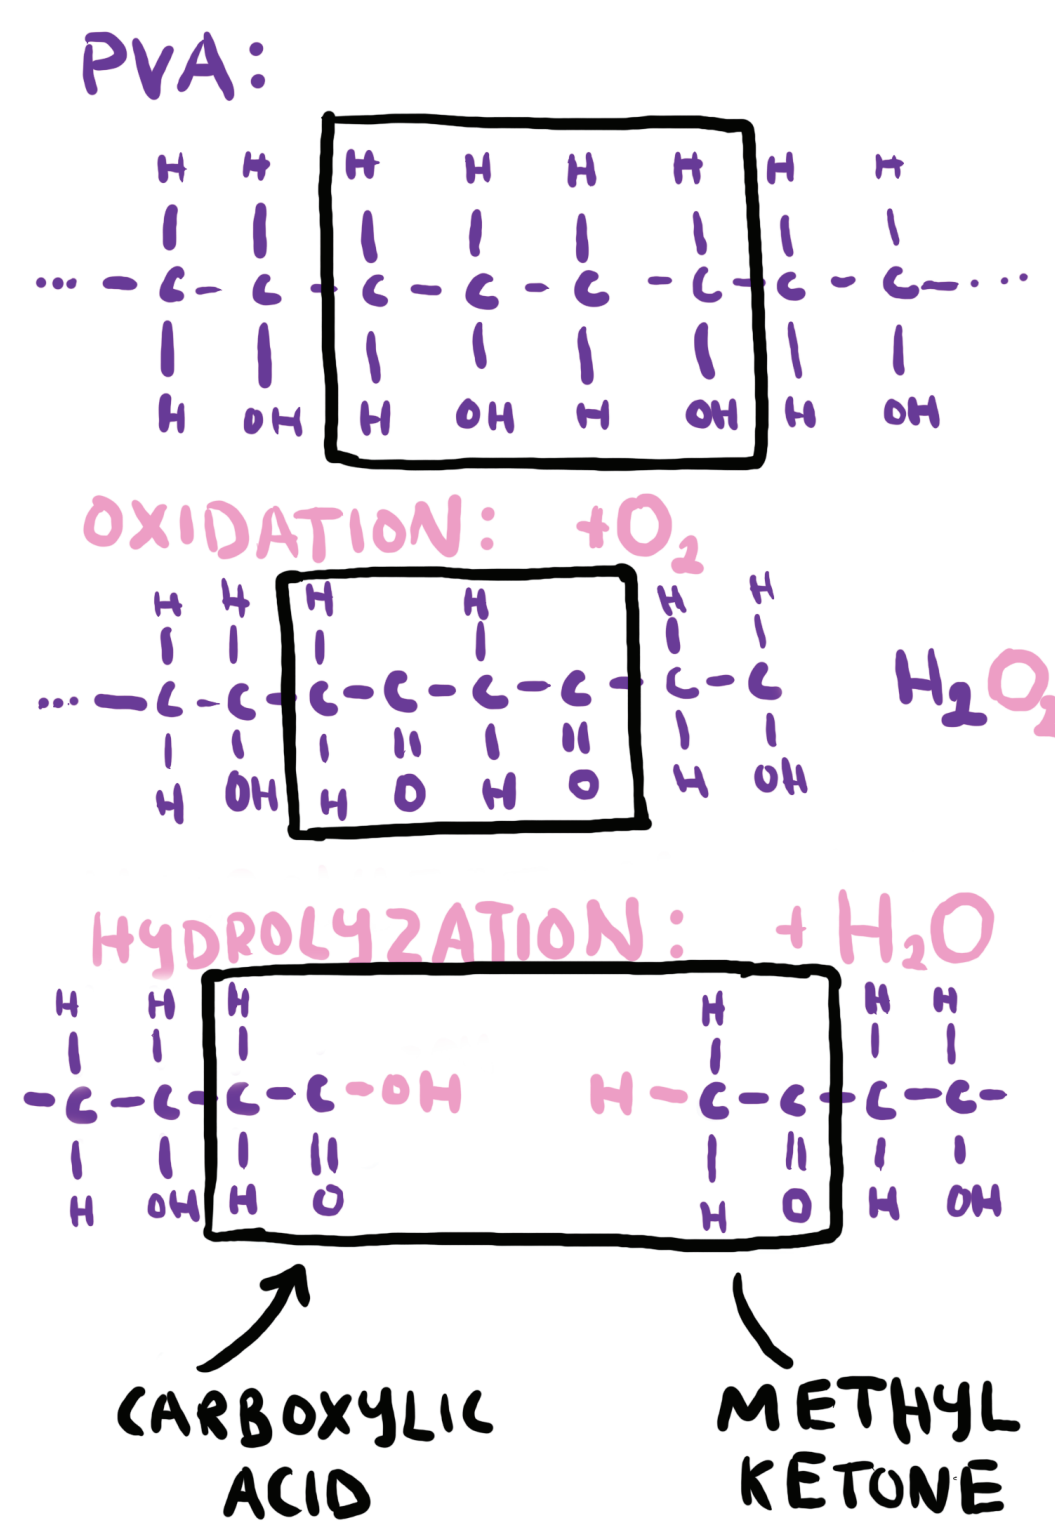 PVA:
H H H H H H H H
... — C - C - C - C - C - C - C - C — ...
H OH H OH H OH H OH
OXIDATION: +O₂
H H H H H H
... — C - C - C - C - C - C - C - C
H OH H O H O H OH
H₂O₂
HYDROLYZATION: + H₂O
H H H H H H
- C - C - C - C - OH H - C - C - C - C -
H OH H O H O H OH
CARBOXYLIC
ACID
METHYL
KETONE